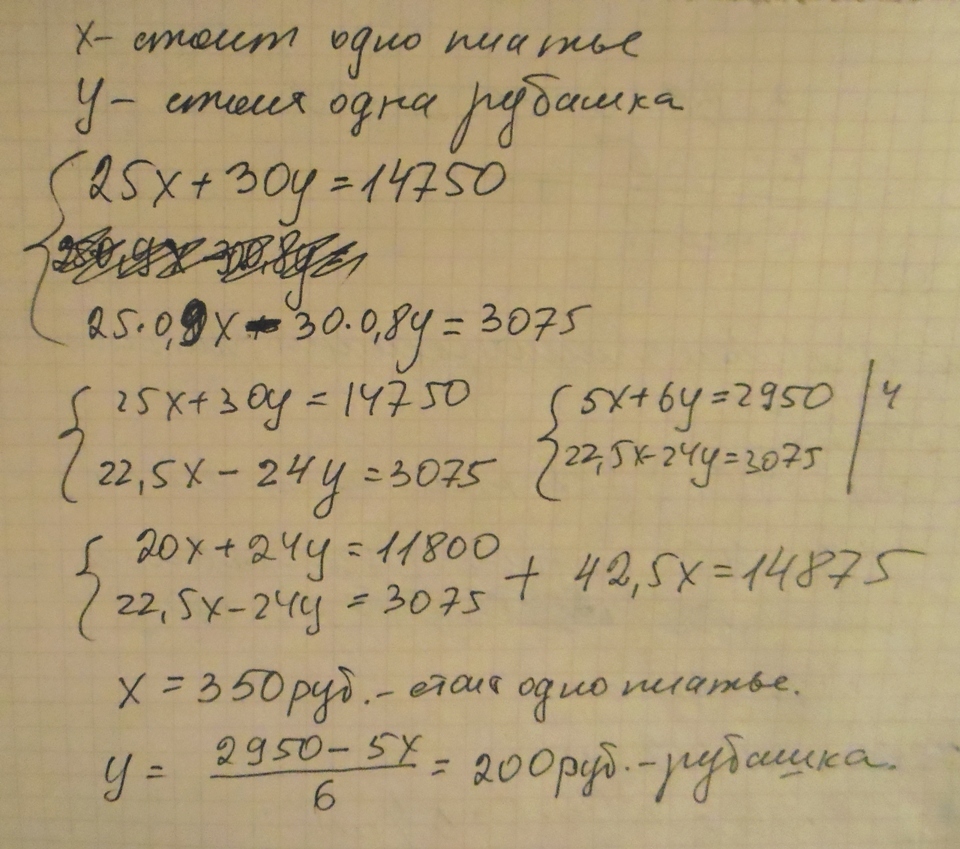 x- стоит одно платье
y- стоит одна рубашка
25x+30y=14750
25·0,9x - 30·0,8y = 3075
25x+30y = 14750
22,5x - 24y = 3075
5x+6y=2950 | 4
22,5x-24y=3075
20x+24y = 11800
22,5x-24y = 3075
+ 42,5x = 14875
x = 350 руб. - стоит одно платье.
y = (2950 - 5x)/6 = 200 руб. - рубашка.